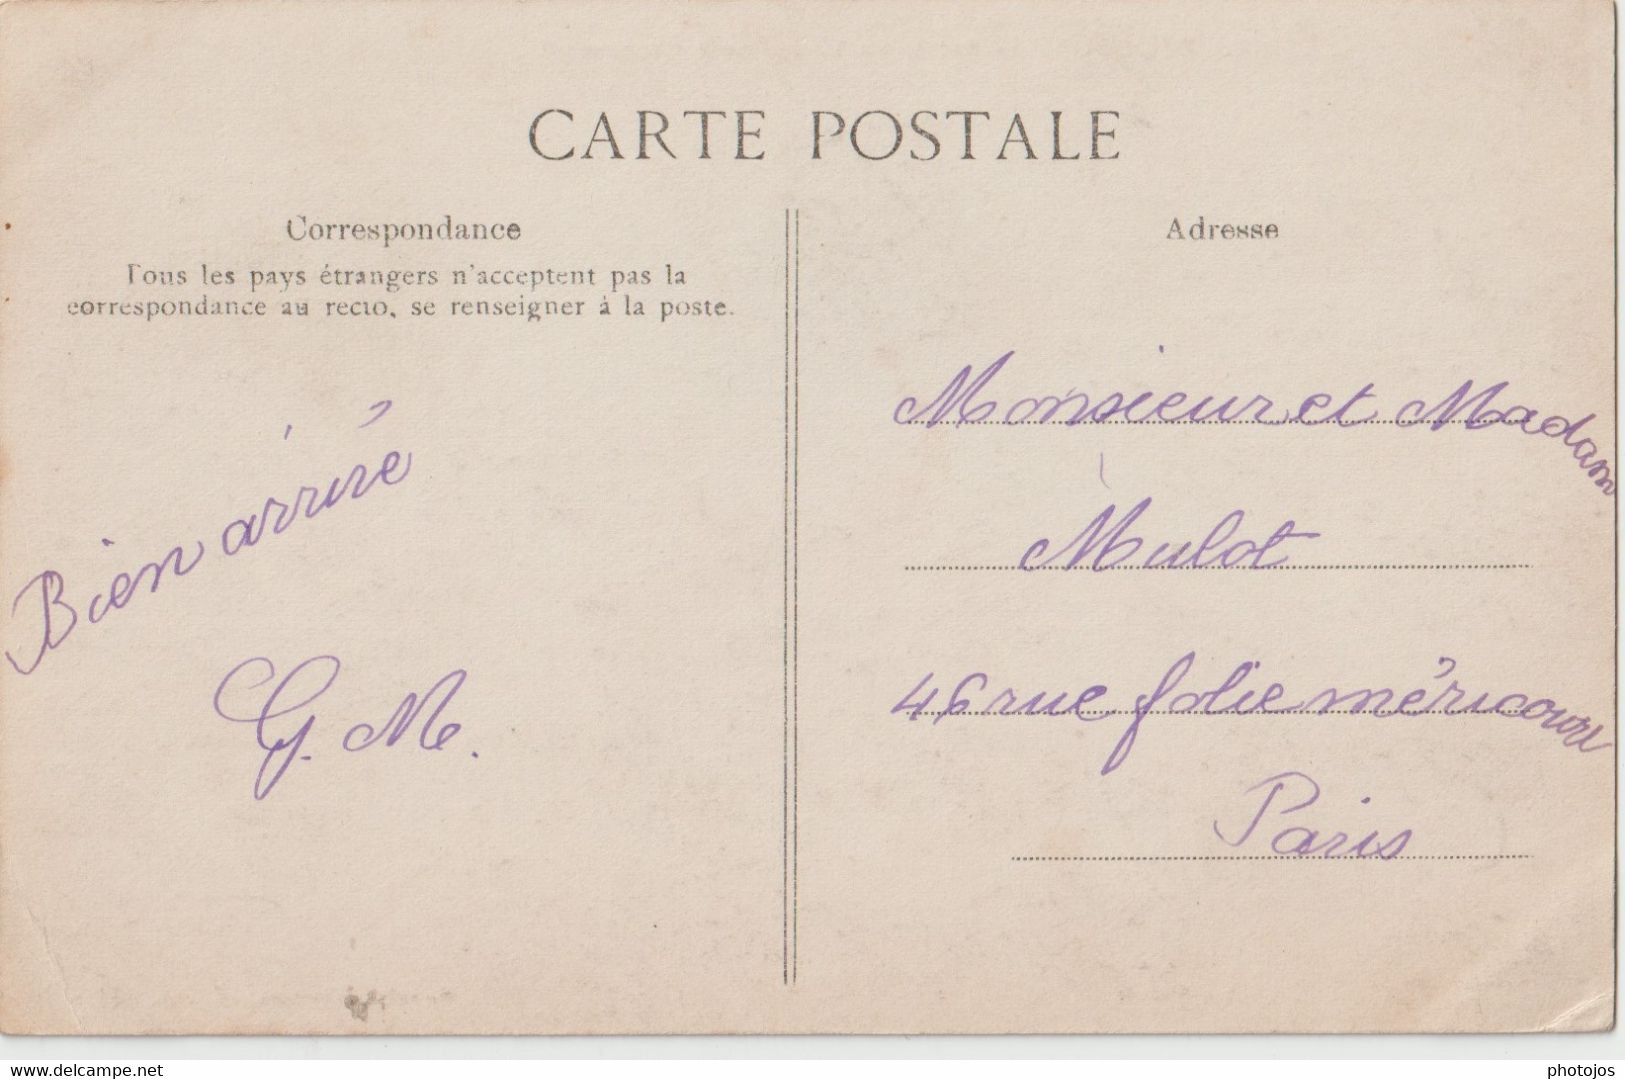 CARTE POSTALE
Correspondance
Tous les pays étrangers n'acceptent pas la
correspondance au recto, se renseigner à la poste.
Bien arrivé
G. M.
Adresse
Monsieur et Madam
Mulot
46 rue folie méricourt
Paris
delcampe.net
photojos